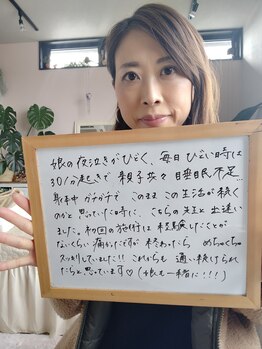 娘の夜泣きがひどく、毎日ひどい時は
30分起きで親子共々睡眠不足…
身体ガチガチで、このままこの生活が続く
のかと思っていた時に、こちらの先生と出逢い
ました。初回の施術は経験したことが
ないくらい痛かったですが終わったら めちゃくちゃ
スッキリしていました!! これからも 通い続けられ
たらと思っています♡ (娘も一緒に!!!)